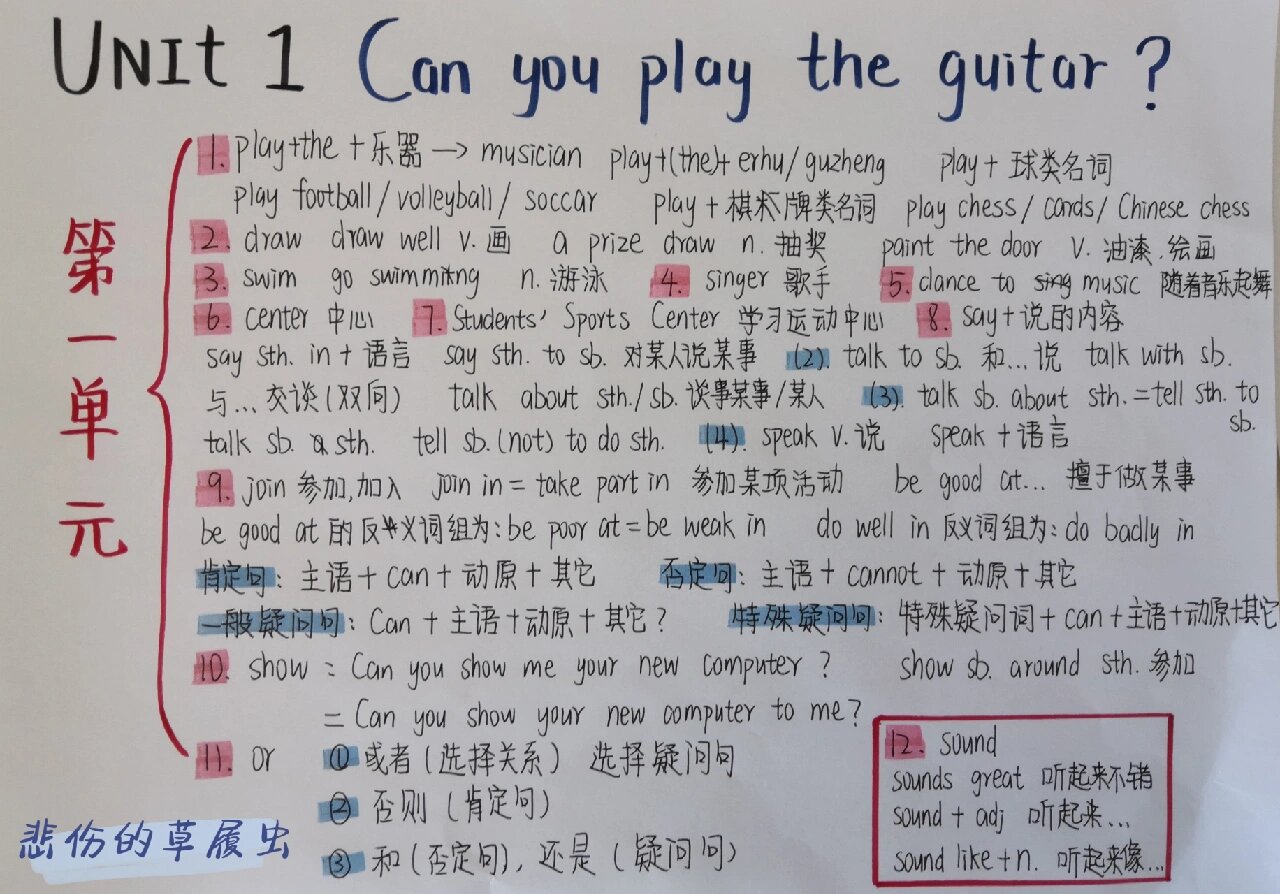 UNIt 1 Can you play the guitar?
第一单元
1. play+the+乐器→musician play+(the)+erhu/guzheng play+球类名词
play football/volleyball/soccar play+棋术/牌类名词 play chess/cards/Chinese chess
2. draw draw well v.画 a prize draw n.抽奖 paint the door v.油漆.绘画
3. swim go swimming n.游泳 4. singer 歌手 5. dance to music 随着音乐起舞
6. center 中心 7. Students' Sports Center 学习运动中心 8. say+说的内容
say sth. in+语言 say sth. to sb. 对某人说某事 (2). talk to sb. 和...说 talk with sb.
与...交谈(双向) talk about sth./sb. 谈某事/某人 (3). talk sb. about sth.=tell sth. to sb.
talk sb. sth. tell sb.(not) to do sth. (4). speak v.说 speak+语言
9. join 参加,加入 join in=take part in 参加某项活动 be good at... 擅于做某事
be good at 的反义词组为:be poor at=be weak in do well in 反义词组为:do badly in
肯定句:主语+can+动原+其它 否定句:主语+cannot+动原+其它
一般疑问句:Can+主语+动原+其它? 特殊疑问句:特殊疑问词+can+主语+动原+其它
10. show = Can you show me your new computer? show sb. around sth. 参加
= Can you show your new computer to me?
11. or ① 或者(选择关系) 选择疑问句
② 否则(肯定句)
③ 和(否定句),还是(疑问句)
12. sound
sounds great 听起来不错
sound+adj 听起来...
sound like+n. 听起来像...
悲伤的草履虫